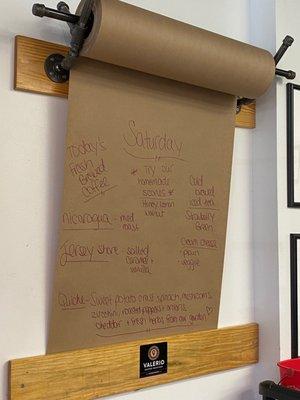 Saturday
Today's
Fresh
Brewed
Coffee
* Try our
homemade
scones *
Honey lemon
walnut
Cold
brewed
iced tea
Strawberry
Green
Nicaragua - med
roast
Jersey Shore - salted
caramel +
vanilla
Cream cheese
- plain
- veggie
Quiche - Sweet potato crust, spinach, mushrooms,
zucchini, roasted peppers + onions,
cheddar + fresh herbs from our garden!
VALERIO